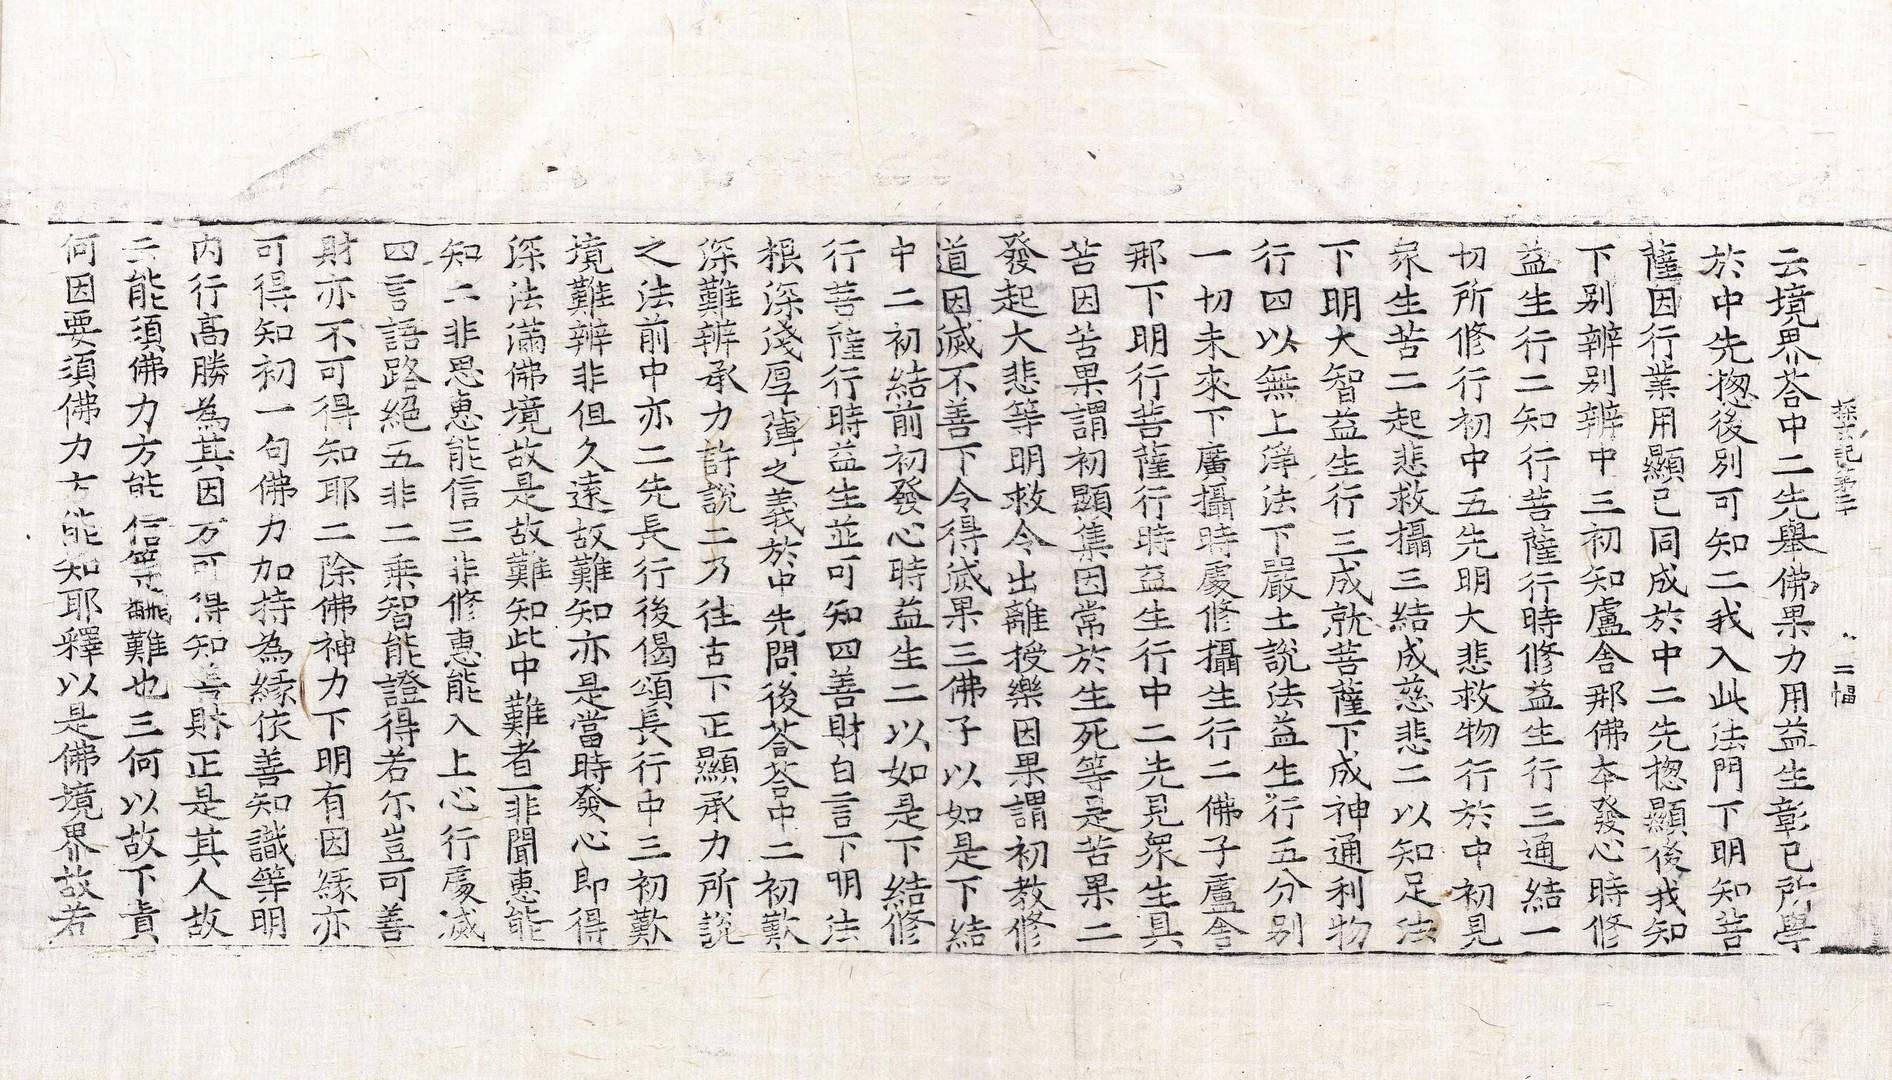 二幅
云境界荅中二先舉佛果力用益生彰已所學
於中先揔後別可知二我入此法門下明知菩
薩因行業用顯已同成於中二先揔顯後我知
下別辨別辨中三初知盧舍那佛本發心時修
益生行二知行菩薩行時修益生行三通結一
切所修行初中五先明大悲救物行於中初見
衆生苦二起悲救攝三結成慈悲二以知足法
下明大智益生行三成就菩薩下成神通利物
行四以無上淨法下嚴土說法益生行五分别
一切未來下廣攝時處修攝生行二佛子盧舍
那下明行菩薩行時益生行中二先見衆生具
苦因苦果謂初顯集因常於生死等是苦果二
發起大悲等明救令出離授樂因果謂初教修
道因滅不善下令得滅果三佛子以如是下結
中二初結前初發心時益生二以如是下結修
行菩薩行時益生並可知四善財白言下明法
根深淺厚薄之義於中先問後荅荅中二初歎
深難辨承力許說二乃往古下正顯承力所說
之法前中亦二先長行後偈頌長行中三初歎
境難辨非但久遠故難知亦是當時發心即得
深法滿佛境故是故難知此中難者一非聞惠能
知二非思惠能信三非修惠能入上心行處滅
四言語路絕五非二乘智能證得若尔豈可善
財亦不可得知耶二除佛神力下明有因緣亦
可得知初一句佛力加持為緣依善知識等明
内行高勝為其因方可得知善財正是其人故
云能須佛力方能信等 難也三何以故下責
何因要須佛力方能知耶釋以是佛境界故若